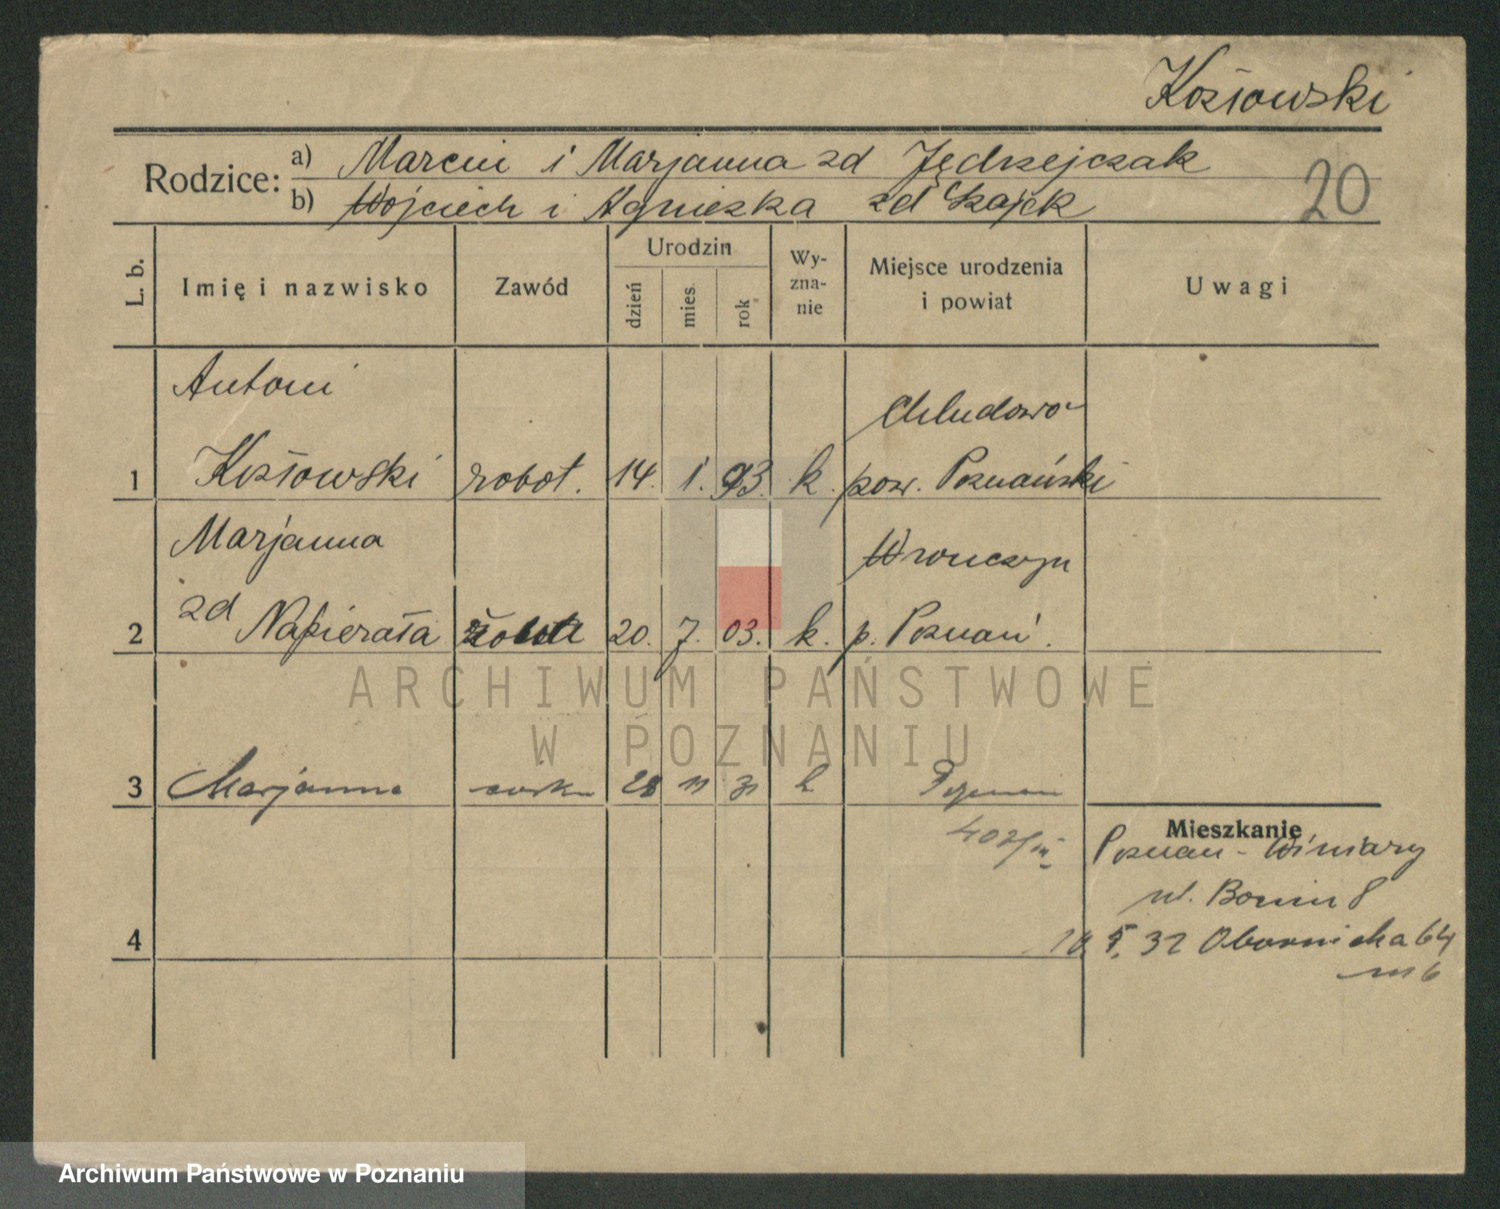 Kozłowski
Rodzice: a) Marcin i Marjanna zd Jędrzejczak
b) Wojciech i Agnieszka zd Szajek
20
L. b. Imię i nazwisko Zawód Urodzin dzień mies. rok Wyzna-nie Miejsce urodzenia i powiat Uwagi
Antoni Chludowo
1 Kozłowski robot. 14. 1. 93. k. pow. Poznański
Marjanna Wronczyn
2 zd Napierała 20. 7. 03. k. p. Poznań.
ARCHIWUM PAŃSTWOWE
W POZNANIU
3 Marjanna córka 28 11 31 k Poznań
Mieszkanie
Poznań - Winiary
ul. Bonin 8
4
10. 5. 32 Obornicka 64
m 6
Archiwum Państwowe w Poznaniu